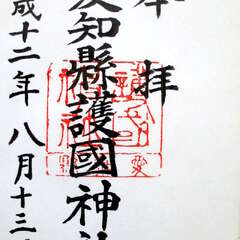 奉拝
愛知縣護國神社
成十二年八月十三日